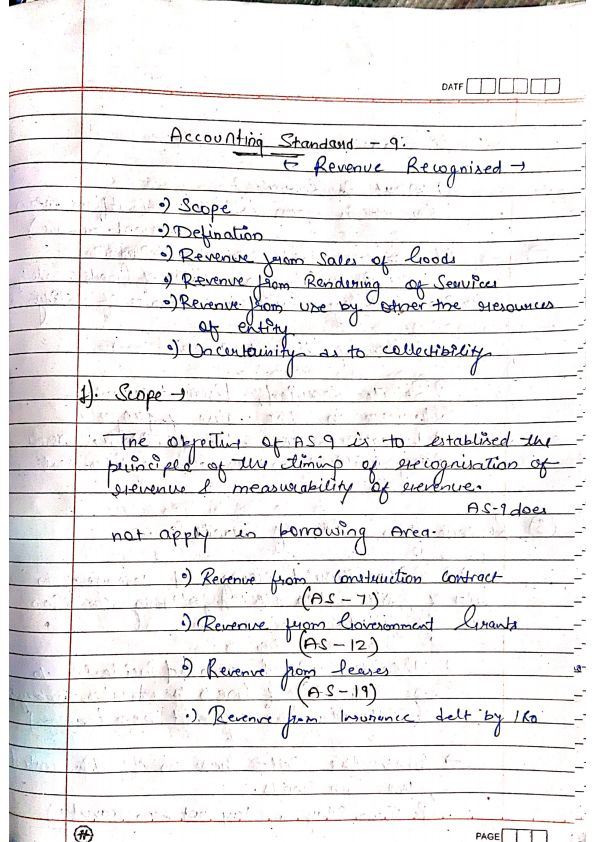 DATE
Accounting Standard - 9:
Revenue Recognised →
•) Scope
•) Defination
•) Revenue from Sales of Goods
•) Revenue from Rendering of Services
•) Revenue from use by other the resources
of entity
•) Uncertainity as to collectibility
1). Scope →
The objective of AS 9 is to establised the
principled of the timing of recognisation of
revenue & measurability of revenue.
AS-9 does
not apply in borrowing Area.
•) Revenue from Construction contract
(AS-7)
•) Revenue from Government Grants
(AS-12)
•) Revenue from leases
(AS-19)
•) Revenue from Insurance delt by
PAGE